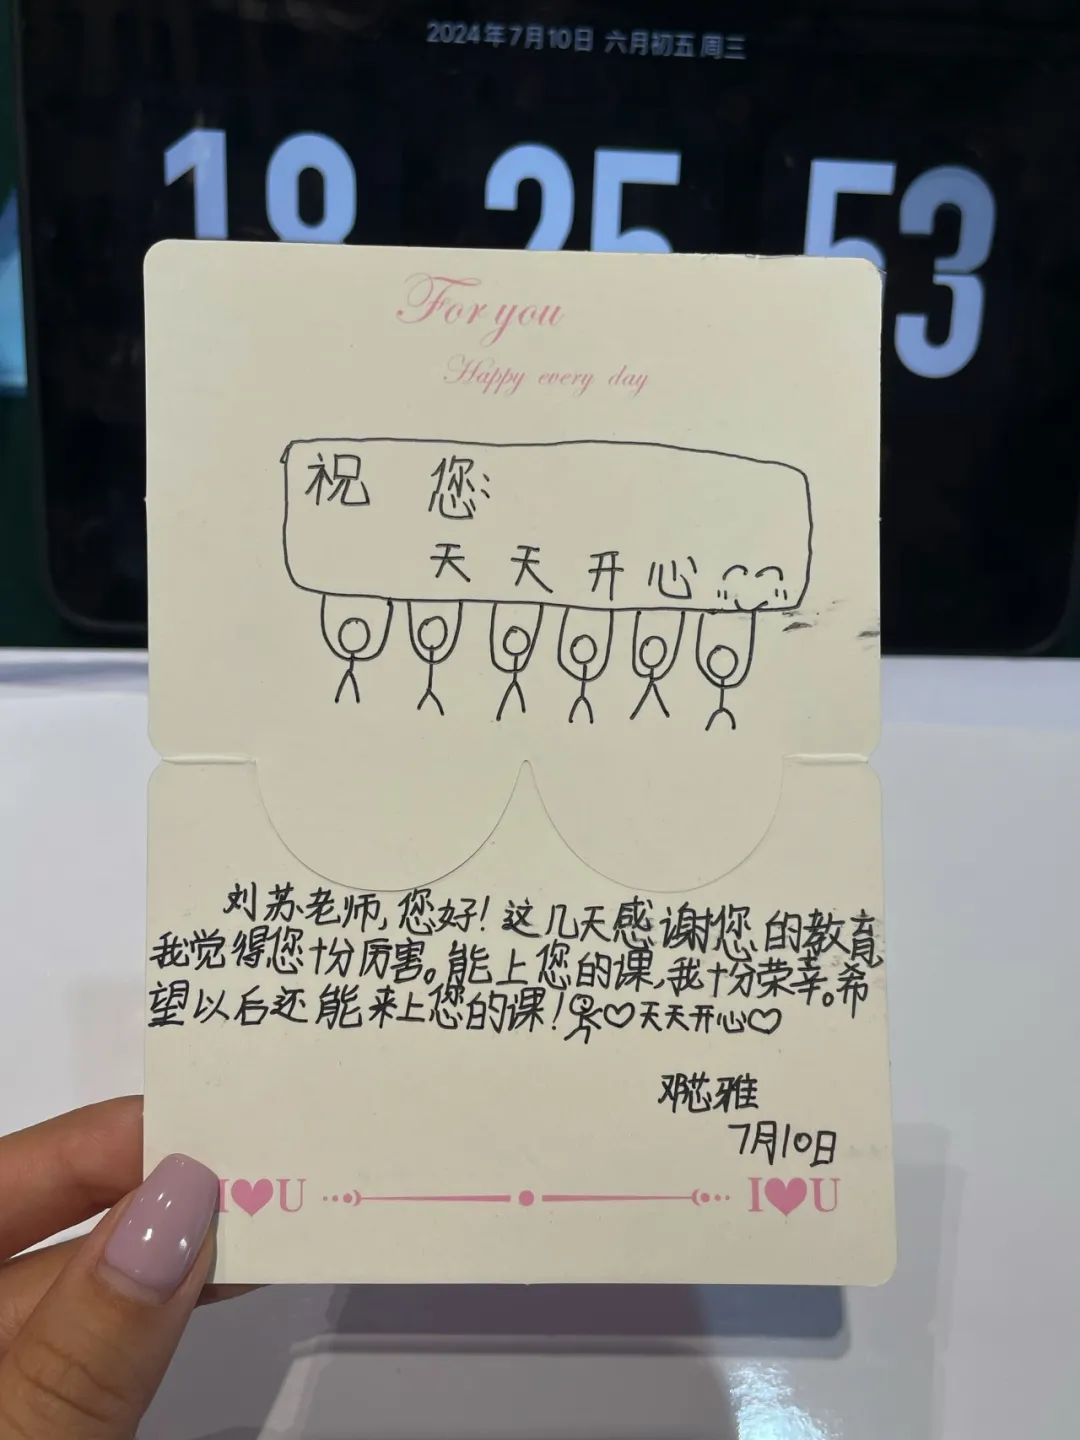 2024年7月10日 六月初五 周三
18 25 53
For you
Happy every day
祝 您:
天天开心
刘苏老师,您好!这几天感谢您的教育,
我觉得您十分厉害。能上您的课,我十分荣幸。希
望以后还能来上您的课!♡天天开心♡
邓芯雅
7月10日
I♥U I♥U